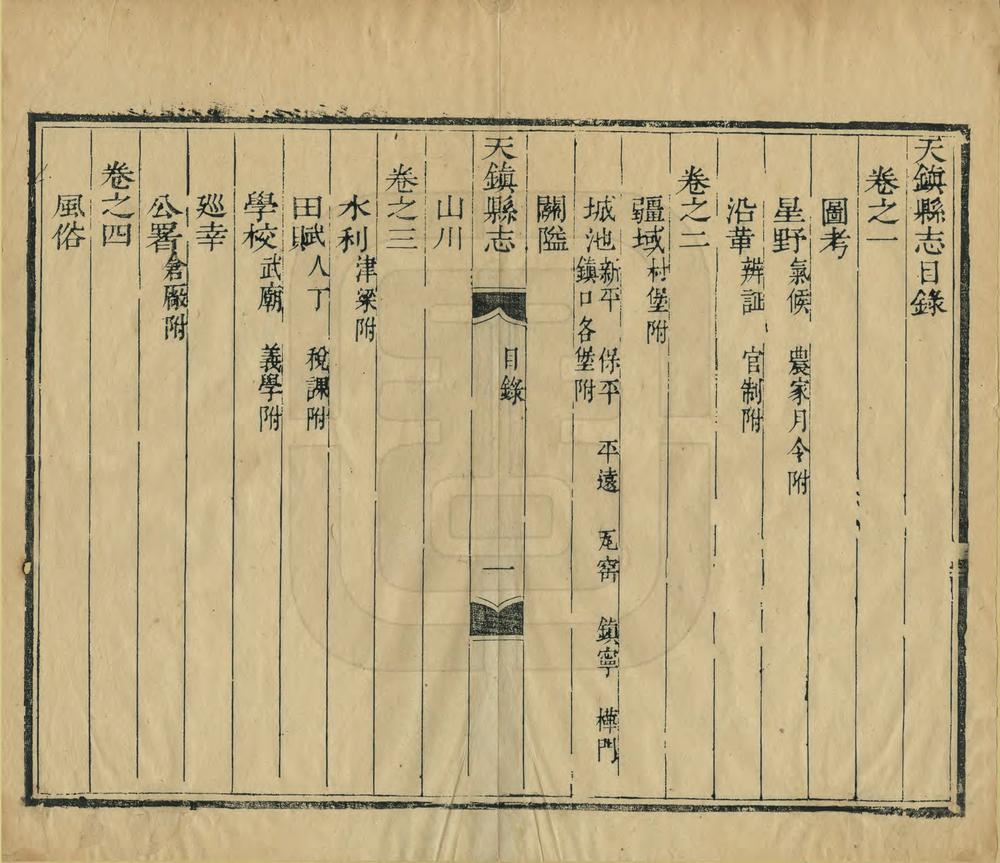 天鎮縣志目錄
卷之一
圖考
星野氣候 農家月令附
沿革辨証 官制附
卷之二
疆域村堡附
城池新平 保平 平遠 瓦窑 鎮寧 樺門
鎮口各堡附
關隘
天鎮縣志 目錄 一
山川
卷之三
水利津梁附
田賦人丁 稅課附
學校武廟 義學附
廵幸
公署倉廠附
卷之四
風俗